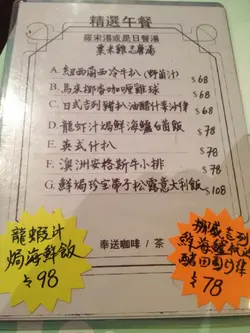 精選午餐
羅宋湯或是日餐湯
粟米雞忌廉湯
A. 紐西蘭西冷牛扒（野菌汁） $68
B. 馬來椰香咖喱雞球 $68
C. 日式吉列豬扒油醋汁菜沙律 $68
D. 龍蝦汁焗鮮海鱸白飯 $78
E. 英式什扒 $78
F. 澳洲安格斯牛小排 $78
G. 鮮焗珍寶帶子松露意大利飯 $108
龍蝦汁
焗海鮮飯
$98
奉送咖啡 / 茶
挪威吉列
鮮海鱸
醋田園沙律
$78